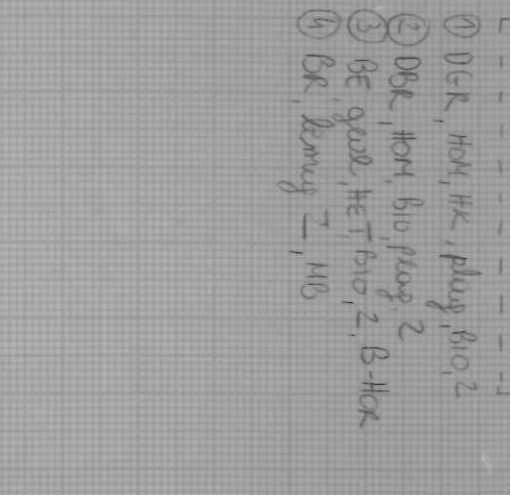 ① DGR, HOM, HK, plug, BIO, 2
② DBR, HOM, BIO, plug, 2
③ BE, geul, HET, BIO, 2, B-HOR
④ BR, lemig Z, MB